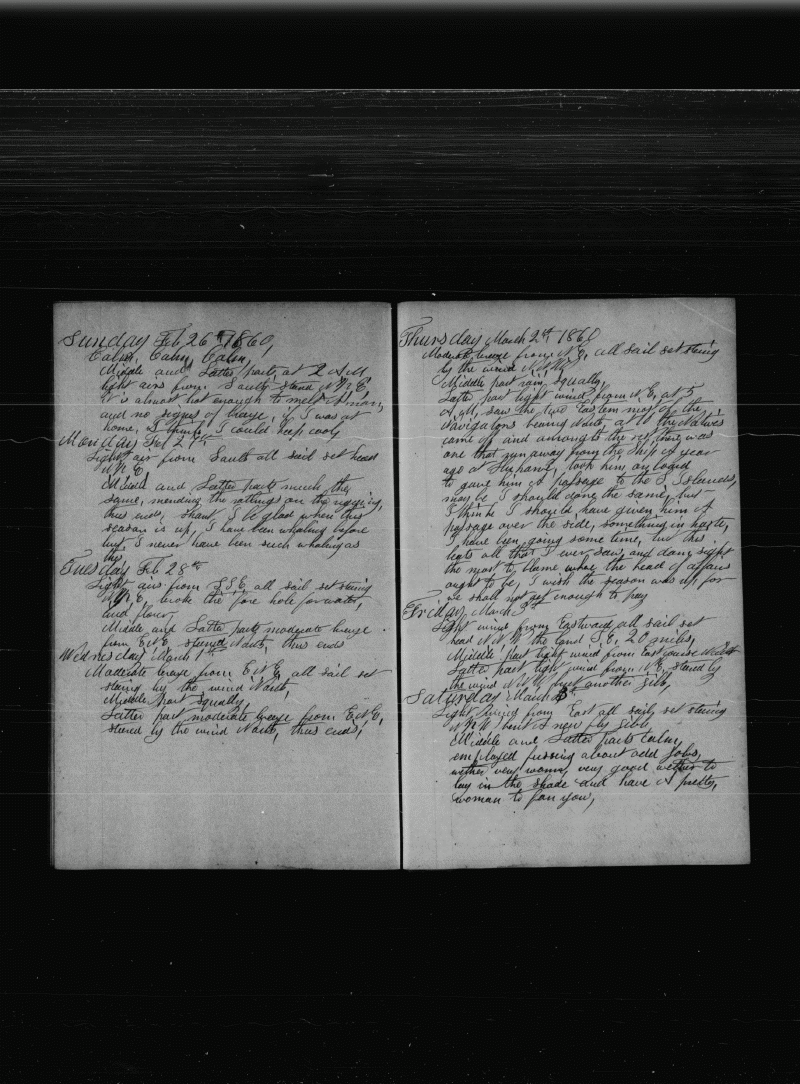 Sunday Feb 26th 1860,
Calm, Calm, Calm,
Middle and Latter parts, at 2 A M
light airs from South stered N N E
it is almost hot enough to melt A man,
and no signs of breese, if I was at
home, I think I could keep cool,
Monday Feb 27th
Light air from South all sail set head
N N E,
Middle and Latter parts much the
same, mending the ratlings on the rigging,
thus ends, shant I be glad when this
season is up, I have been whaling before
but I never have been such whaling as
this
Tuesday Feb 28th
Light airs from S S E all sail set stering
N N E broke the fore hole for water,
and flour,
Middle and Latter parts moderate breese
from E N E stered North, thus ends
Wednesday March 1st
Moderate breese from E N E, all sail set
stering by the wind North,
Middle part Squally,
Latter part moderate breese from E N E,
stered by the wind North, thus ends,
Thursday March 2nd 1860
Moderate breese from N E, all sail set stering
by the wind N N W
Middle part rain, squally,
Latter part light wind from N E, at 5
A, M, saw the two Eastern most of the
Navigators bearing North, at 11 the Natives
came off and amongts the set, there was
one that runaway from the Ship A year
ago at took him on board
to gave him A passage to the S Islands,
may be I should done the same, but
I think I should have given him A
passage over the side, something in haste,
I have been going some time, but this
beats all that I ever saw, and dam sight
the most to blame whare the head of affairs
ought to be, I wish the season was up, for
we shall not get enough to pay
Friday March 3rd
Light wind from Eastward all sail set
head N N W the land S E, 20 miles,
Middle part light wind from East course
Latter part light wind from N E, stered by
the wind N N W, bent another gib,
Saturday March
Light wind from East all sail, set stering
N N W bent A new flying gibb,
Middle and Latter parts Calm,
employed fussing about odd Jobs,
wether very warm, very good wether to
lay in the shade and have A pretty,
woman to fan you,